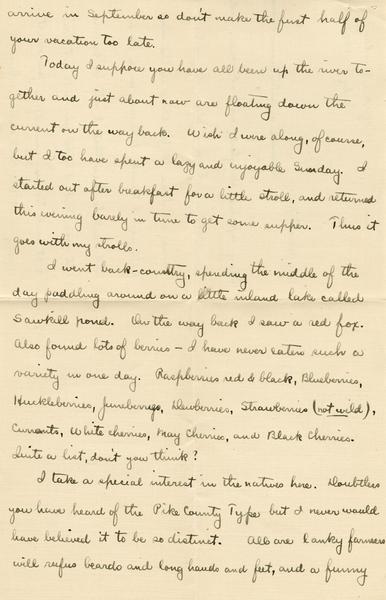 arrive in September so don't make the first half of
your vacation too late.
Today I suppose you have all been up the river to-
gether and just about now are floating down the
current on the way back. Wish I were along, of course,
but I too have spent a lazy and enjoyable Sunday. I
started out after breakfast for a little stroll, and returned
this evening barely in time to get some supper. Thus it
goes with my strolls.
I went back-country, spending the middle of the
day paddling around on a little inland lake called
Sawkill pond. On the way back I saw a red fox.
Also found lots of berries – I have never eaten such a
variety in one day. Raspberries red & black, Blueberries,
Huckleberries, Juneberries, Dewberries, Strawberries (not wild),
Currants, White cherries, May Cherries, and Black Cherries.
Quite a list, don't you think?
I take a special interest in the natives here. Doubtless
you have heard of the Pike County Type but I never would
have believed it to be so distinct. All are lanky farmers
with rufus beards and long hands and feet, and a funny